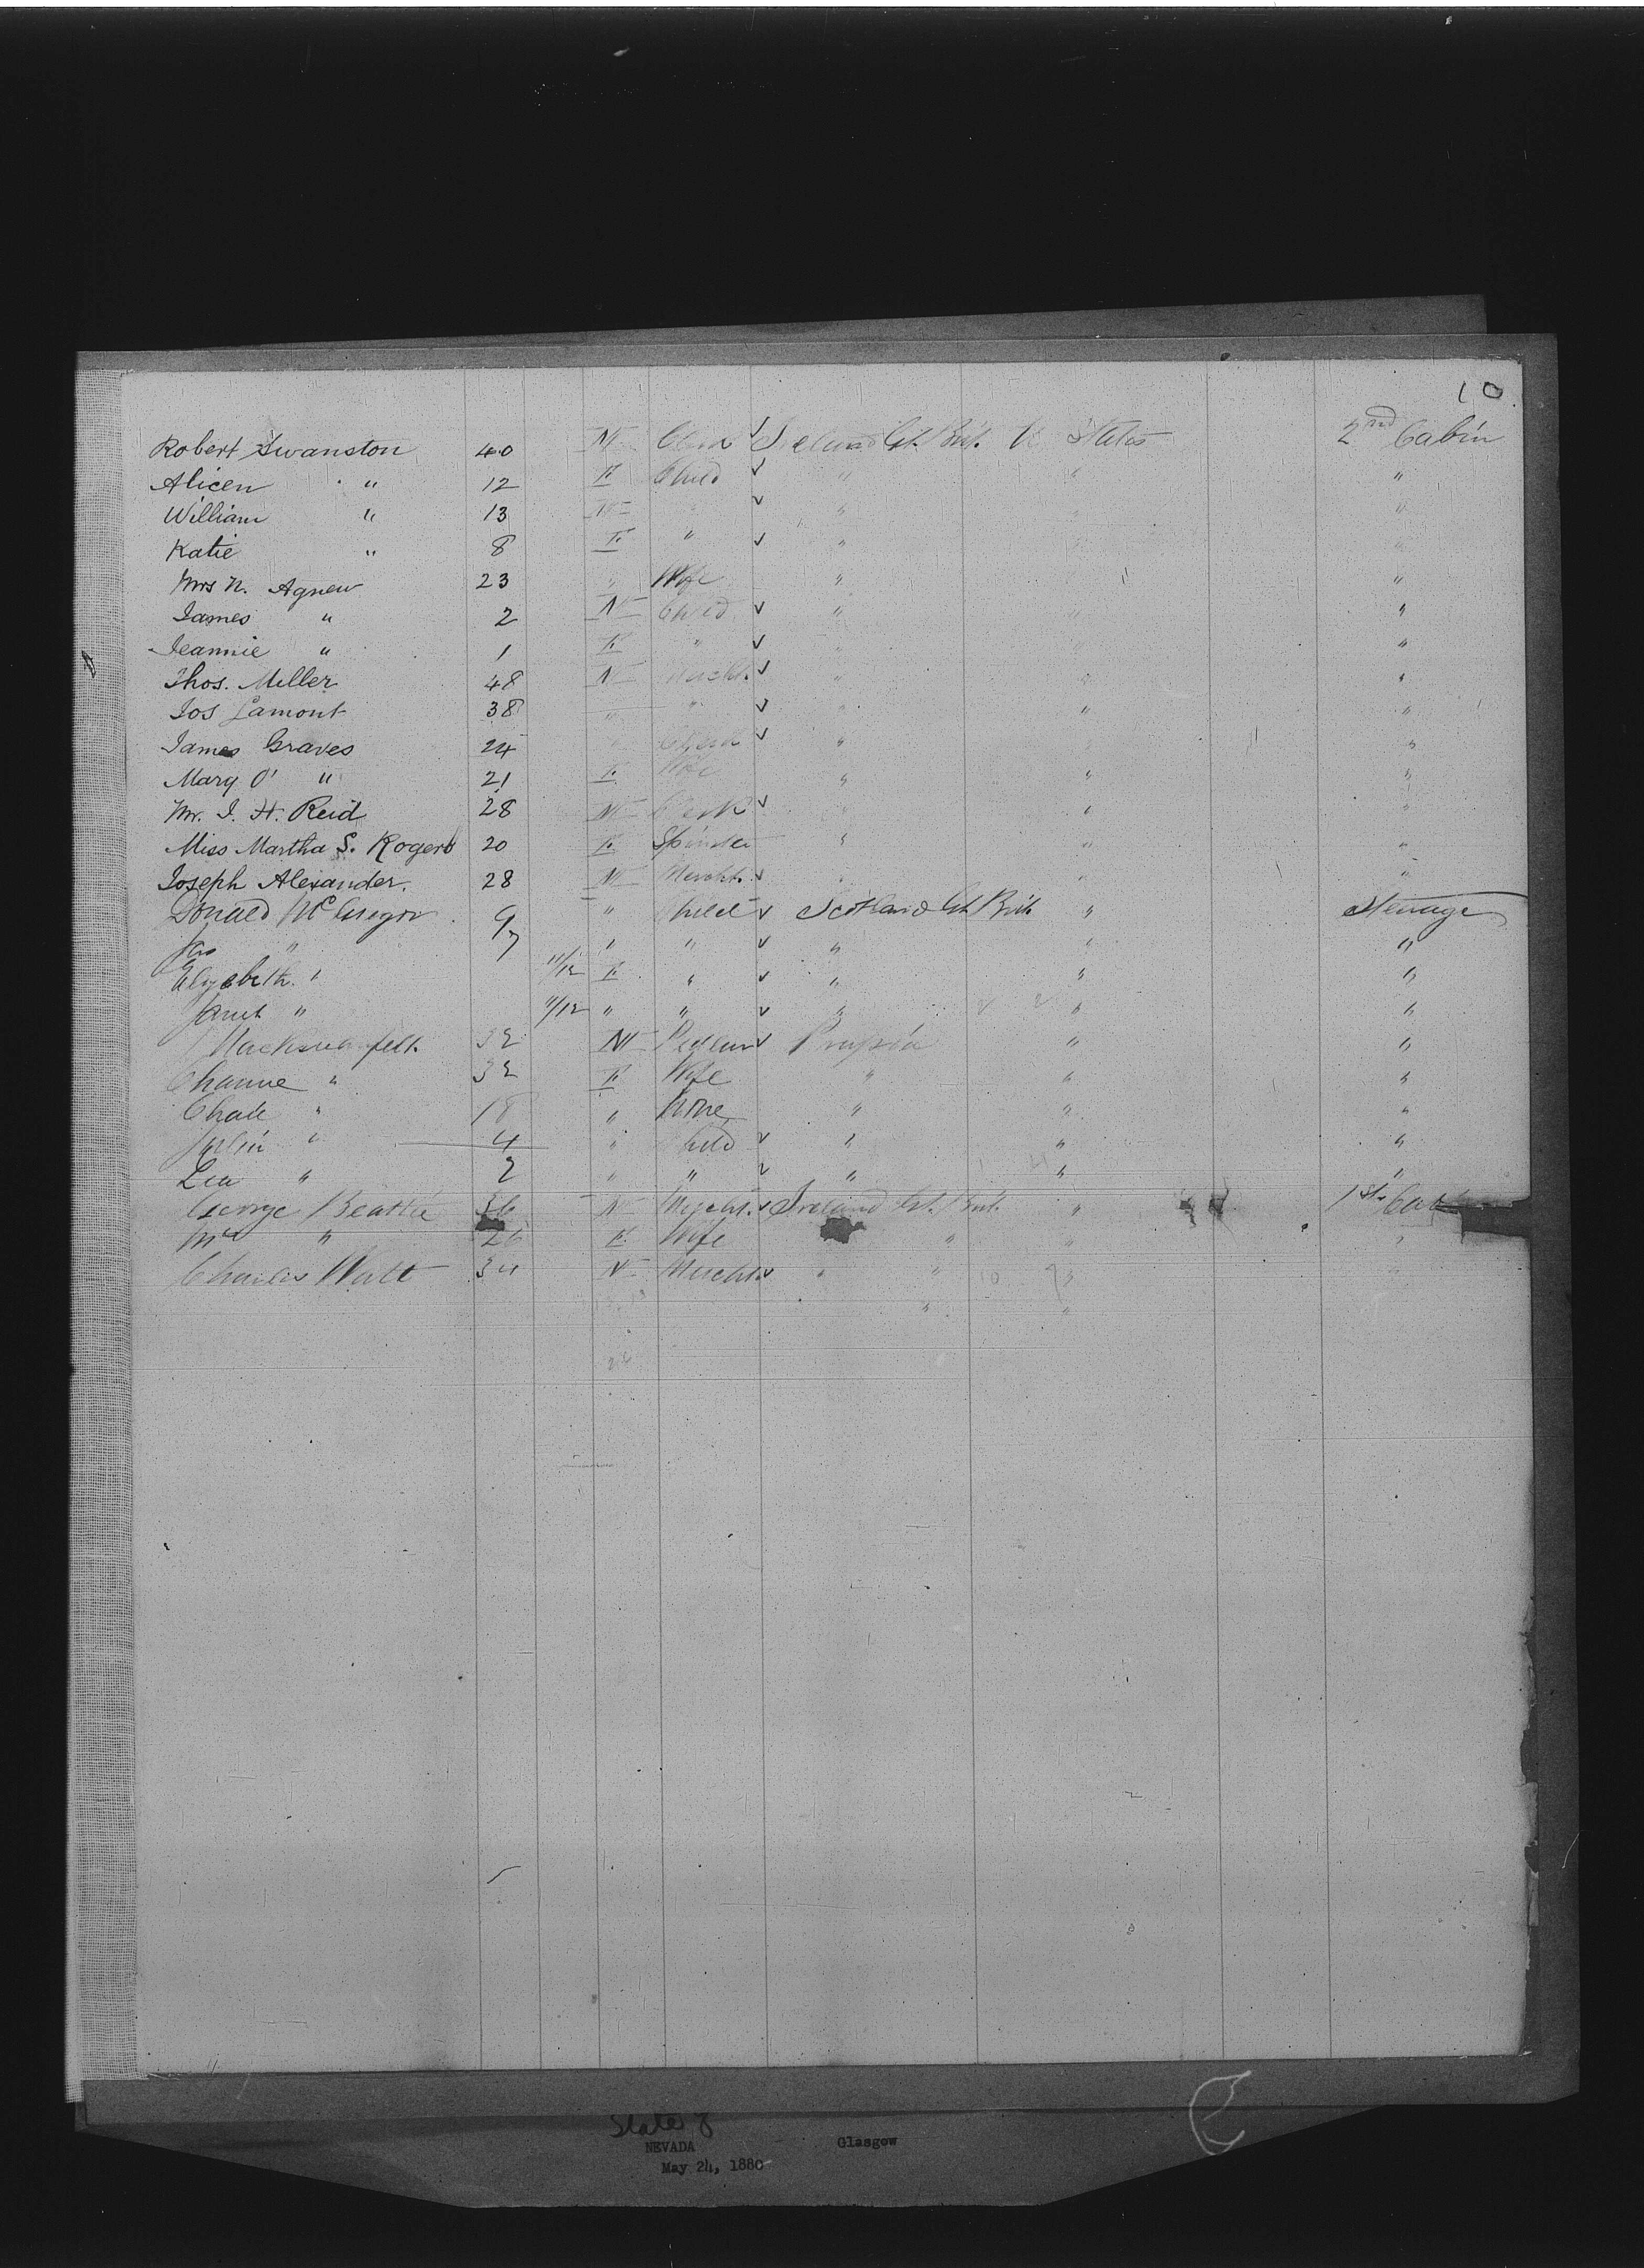 10
Robert Swanston 40 M Clerk ✓ Ireland Gt. Brit. U States 2nd Cabin
Alicen " 12 F Child ✓ " " "
William " 13 M " ✓ " " "
Katie " 8 F " ✓ " "
Mrs N. Agnew 23 " Wife " "
James " 2 M Child ✓ " " "
Jeannie " 1 F " ✓ " "
Thos. Miller 48 M Mercht. ✓ " " "
Jos Lamont 38 " " ✓ " " "
James Graves 24 " ✓ " "
Mary O' " 21 F Wife " " "
Mr. J. H. Reid 28 M Clerk ✓ " " "
Miss Martha S. Rogers 20 F Spinster " " "
Joseph Alexander. 28 M Mercht. ✓ " " "
Donald McGregor 9 " Child ✓ Scotland Gt Brit. " Steerage
Jas " 7 " " ✓ " " "
Elizabeth " 11/12 F " ✓ " " "
Janet " 11/12 " " ✓ " " "
32 M Pedlar ✓ Prussia " "
" 32 F Wife " " "
" 18 " None " " "
" 4 " Child ✓ " " "
Lea " 2 " " ✓ " " "
George Beattie 36 M Mercht. ✓ Ireland Gt. Brit. " 1st Cab
Mrs " 26 F Wife " " "
Charles Watt 34 M Mercht. ✓ " " "
" "
State of
NEVADA Glasgow
May 24, 1880